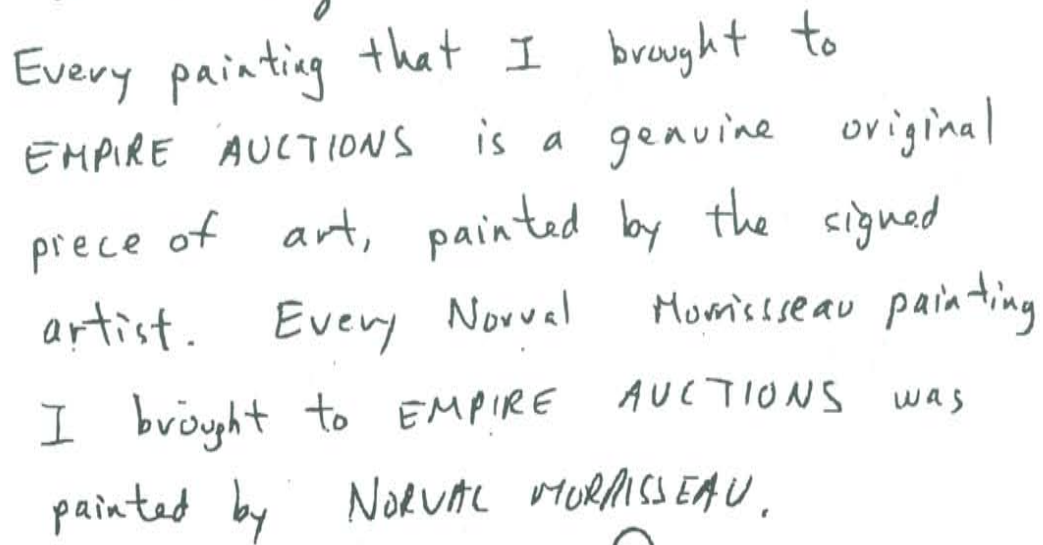 Every painting that I brought to
EMPIRE AUCTIONS is a genuine original
piece of art, painted by the signed
artist. Every Norval Morrissseau painting
I brought to EMPIRE AUCTIONS was
painted by NORVAL MORRISSEAU.